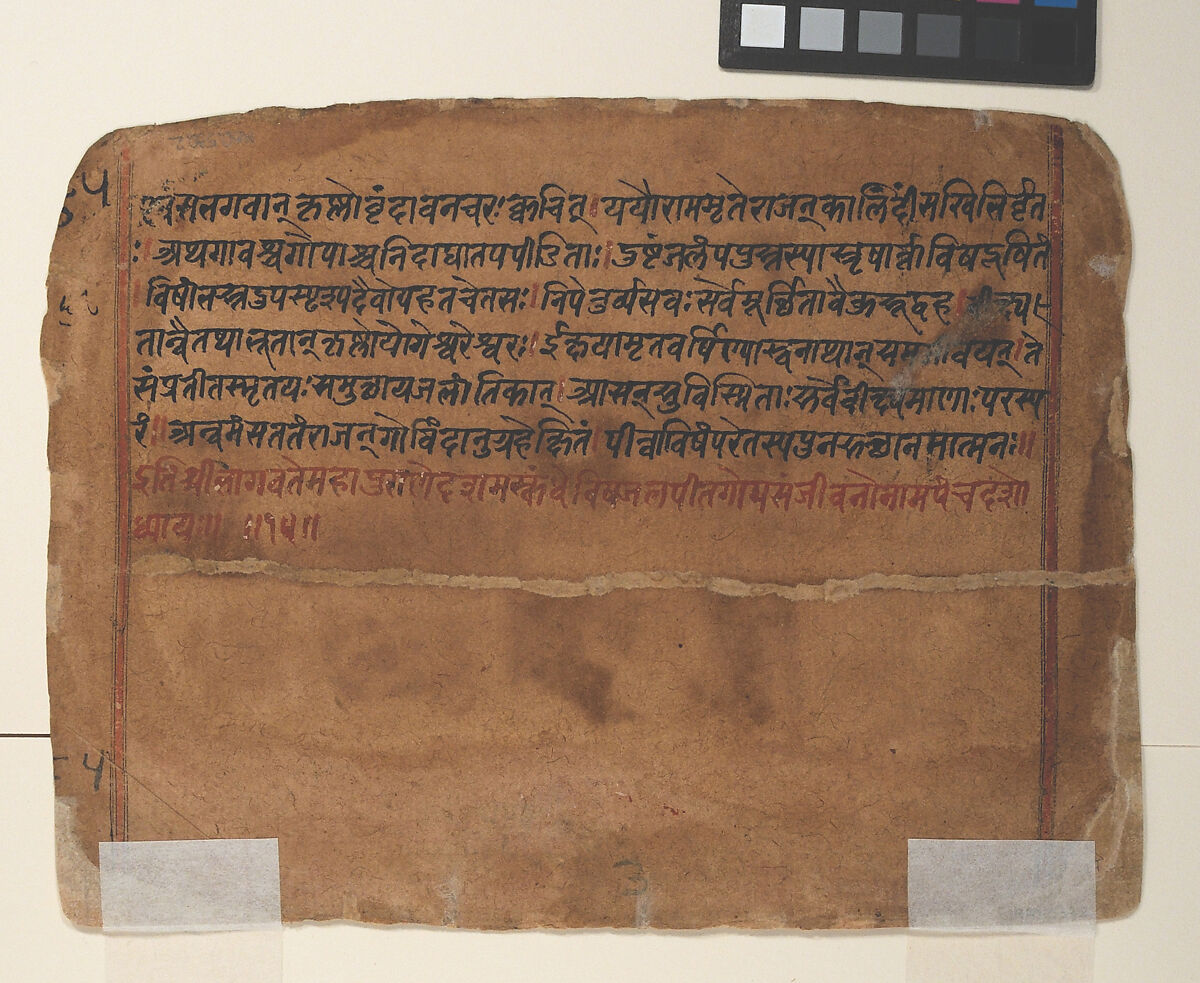 एवं स भगवान् कृष्णो वृंदावनचरः क्वचित् । ययौ राममृते राजन् कालिंदीं सखिभिर्वृत
ः । अथ गावश्च गोपाश्च निदाघातपपीडिताः । दुष्टं जलं पपुस्तस्यास्तृषार्त्ता विषदूषितं
। विषांभस्तदुपस्पृश्य दैवोपहतचेतसः । निपेतुर्व्यसवः सर्वे मूर्छिता वै कुरूद्वह । वीक्ष्य
तान्वै तथाभूतान् कृष्णो योगेश्वरेश्वरः । ईक्षयामृतवर्षिण्या स्वनाथान् समजीवयत् । ते
संप्रतीतस्मृतयः समुत्थाय जलांतिकात् । आसन् सुविस्मिताः सर्वे वीक्ष्यमाणाः परस्प
रं । अन्वमंसत तं राजन् गोविंदानुग्रहेक्षितं । पीत्वा विषं परेतस्य पुनरुत्थानमात्मनः ॥
इति श्रीभागवते महापुराणे दशमस्कंधे विषजलपीतगोपसंजीवनो नाम पंचदशो
ध्यायः ॥ ॥१५॥
५
3